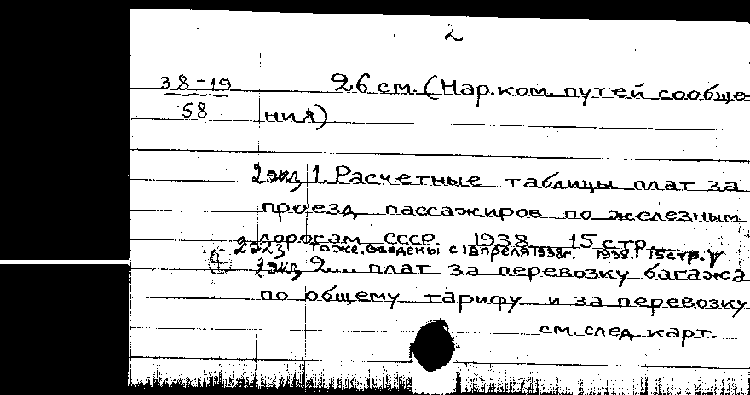 2
38-19 26 см. (Нар.ком. путей сообще-
58 ния)
2 экз 1. Расчетные таблицы плат за
проезд пассажиров по железным
дорогам СССР. 1938. 15 стр.
2 экз Тоже. введены с 1 апреля 1938г. 1938. 15 стр.
1 экз 2.... плат за перевозку багажа
по общему тарифу и за перевозку
см. след. карт.